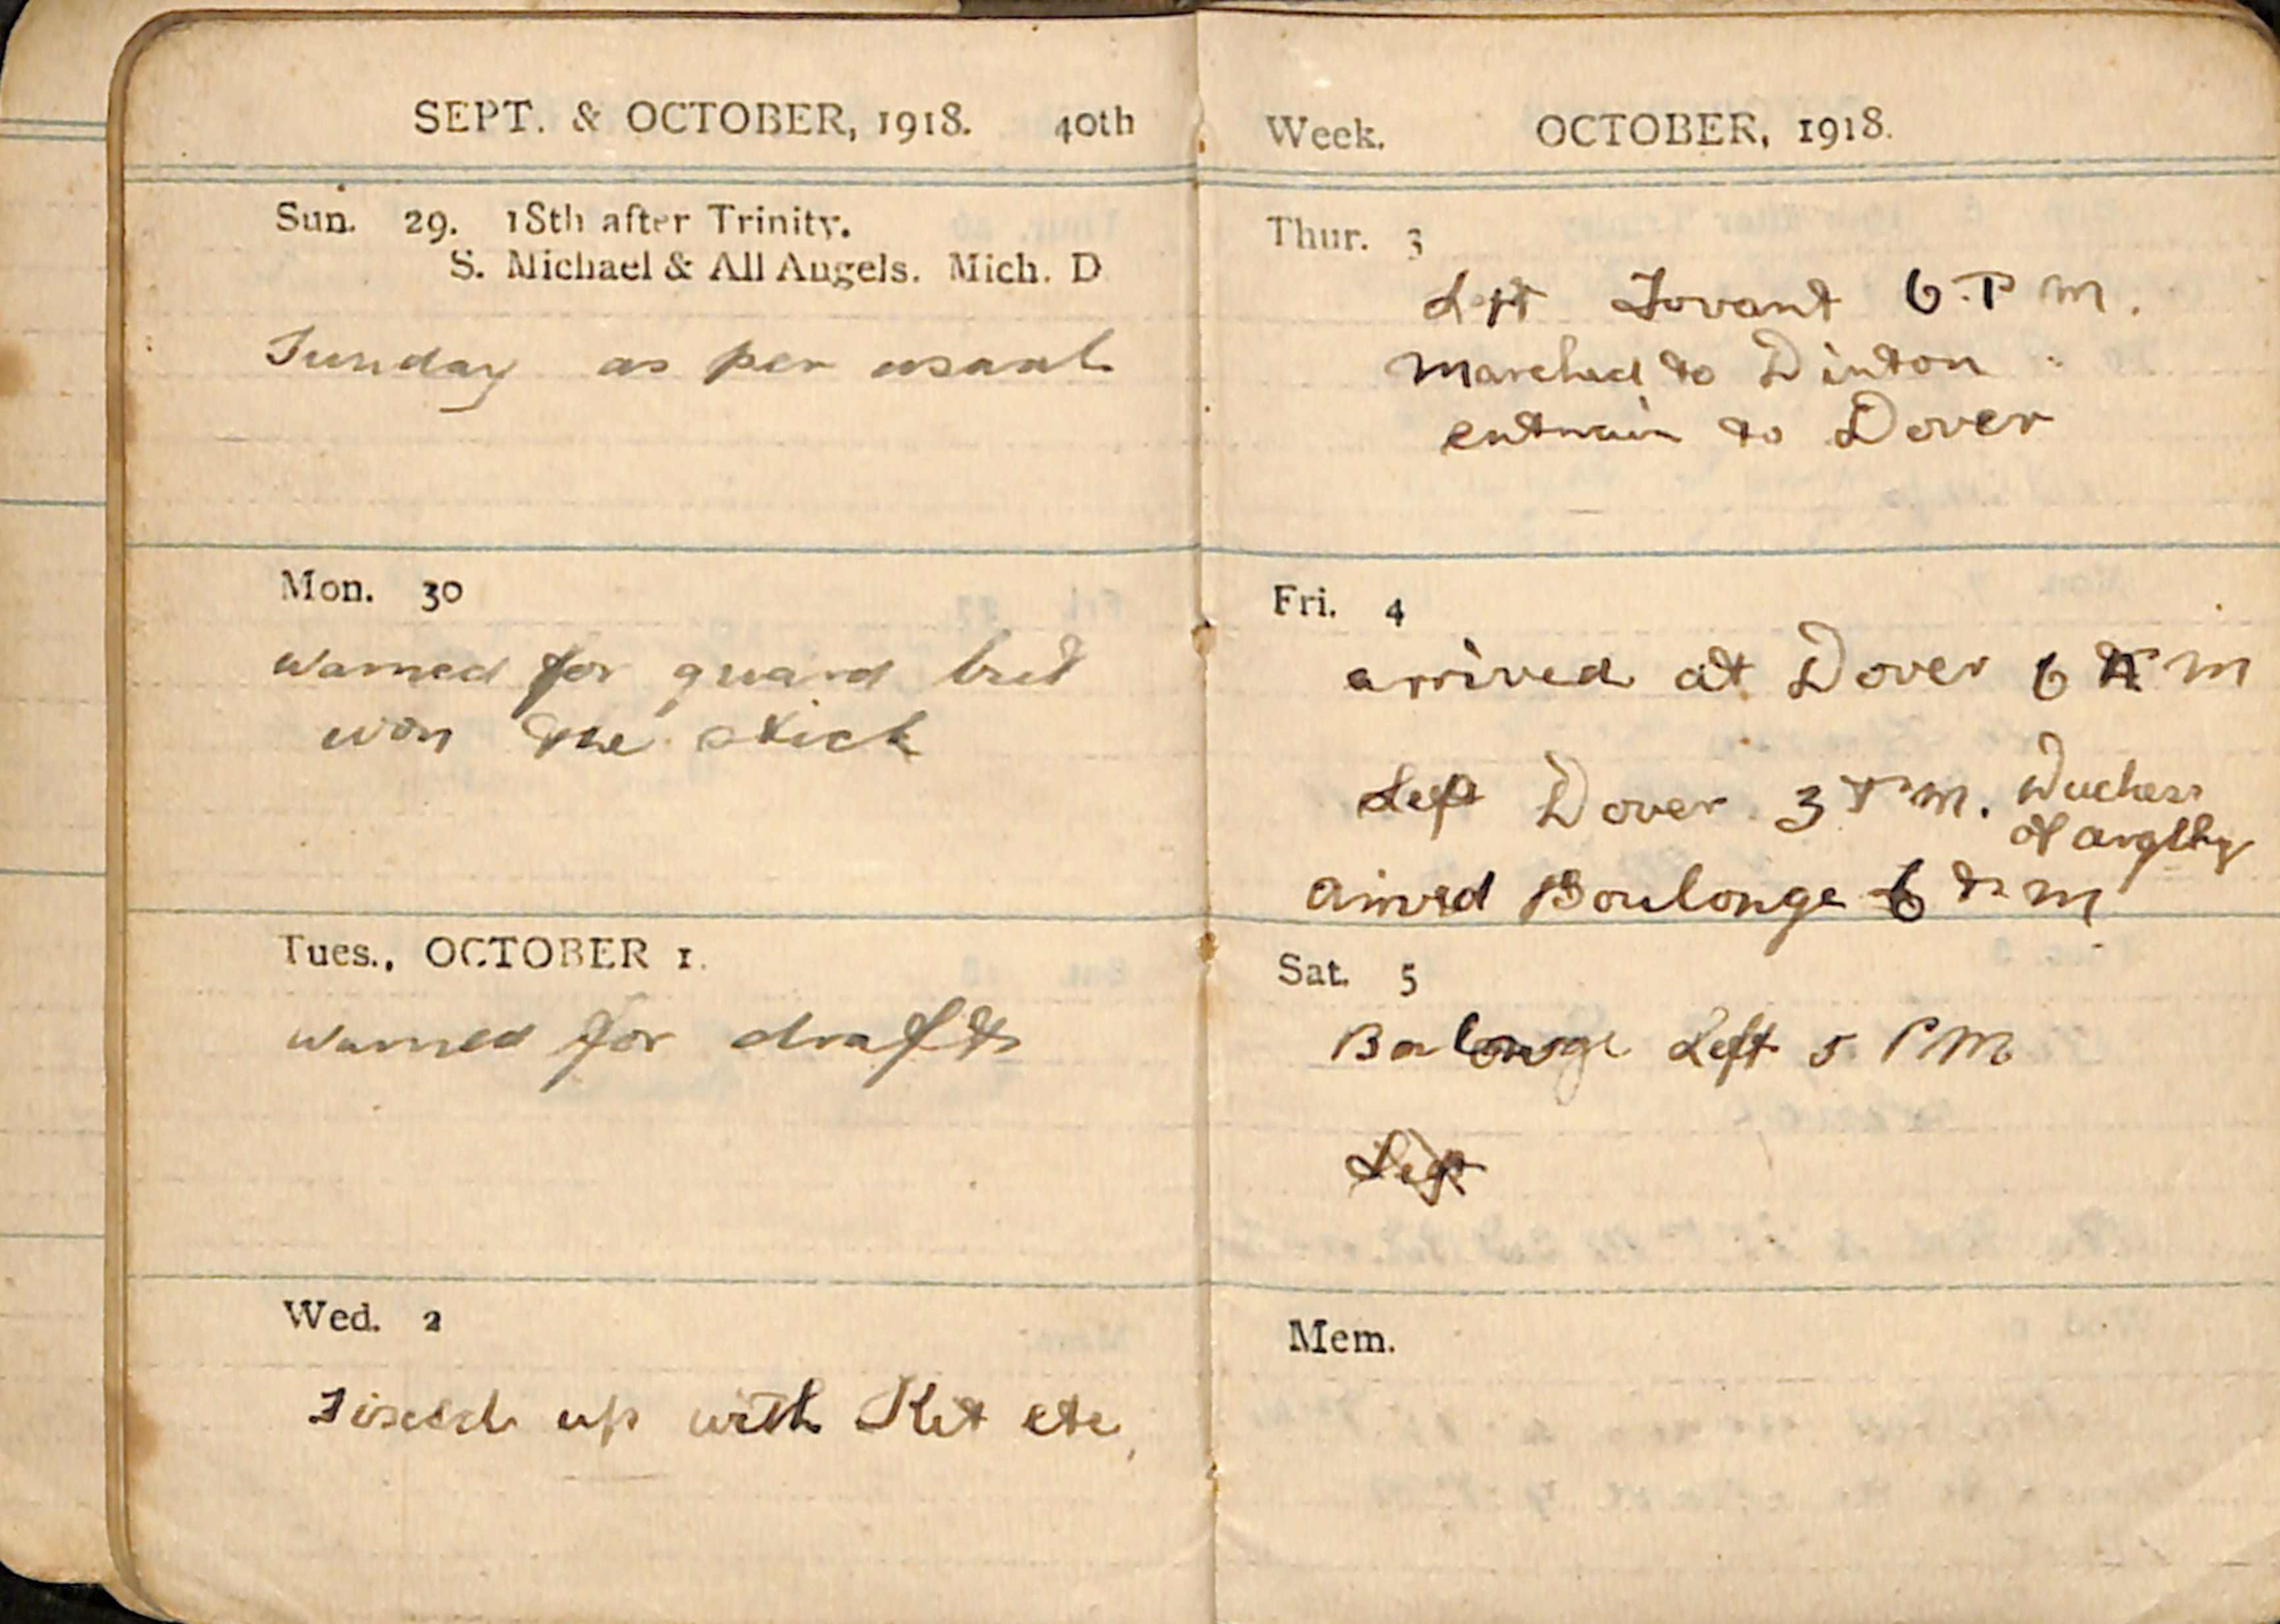 SEPT. & OCTOBER, 1918. 40th
Sun. 29. 18th after Trinity.
S. Michael & All Angels. Mich. D
Sunday as per usual
Mon. 30
warned for guard but
won the stick
Tues., OCTOBER 1.
warned for draft
Wed. 2
up with Kit etc,
Week. OCTOBER, 1918.
Thur. 3
Left Fovant 6.P m.
marched to Dinton
entrain to Dover
Fri. 4
arrived at Dover 6 A m
Left Dover 3 P m. Duchess
of
Boulonge 6 P m
Sat. 5
Left 5 PM
Left
Mem.